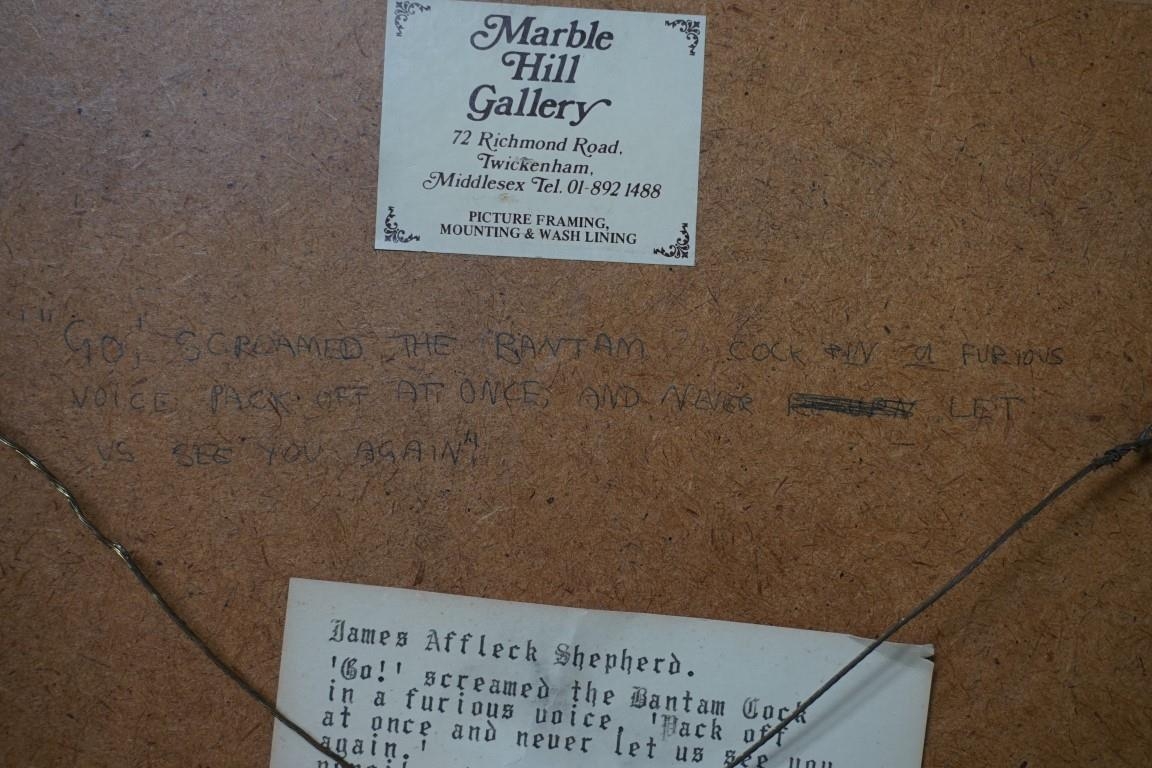 Marble
Hill
Gallery
72 Richmond Road,
Twickenham,
Middlesex Tel. 01-892 1488
PICTURE FRAMING,
MOUNTING & WASH LINING
"'GO', SCREAMED THE BANTAM COCK IN a FURIOUS
VOICE PACK OFF AT ONCE, AND NEVER LET
US SEE YOU AGAIN'"
James Affleck Shepherd.
'Go!' screamed the Bantam Cock
in a furious voice, 'Pack off
at once and never let us see you
again.'